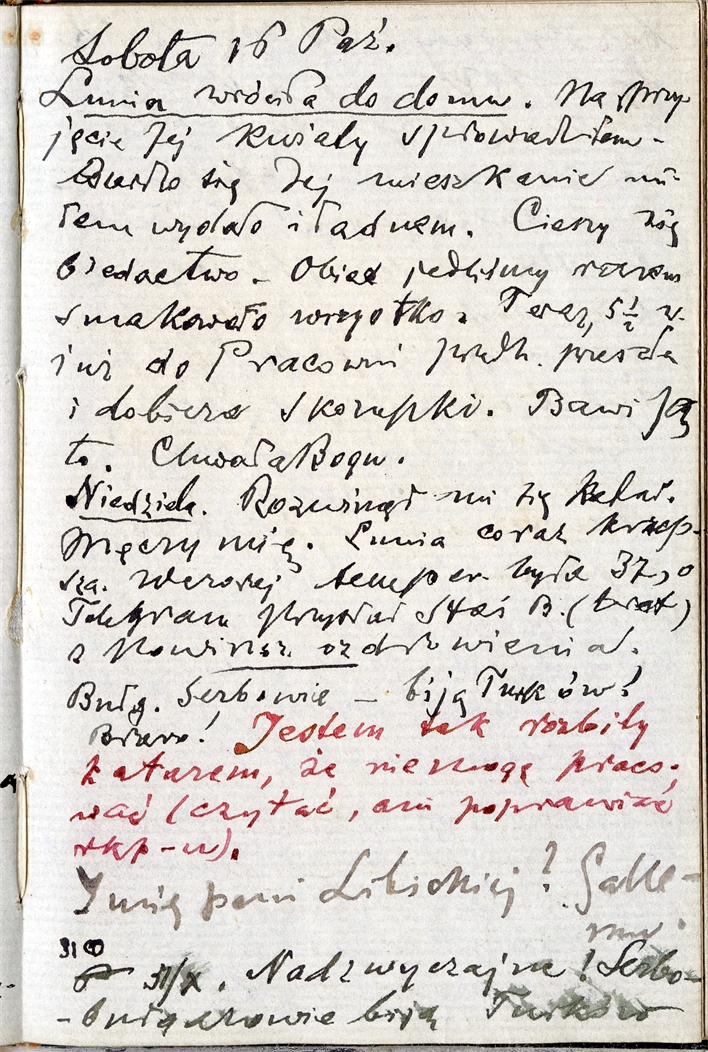 Sobota 26 Paź.
Lunia wróciła do domu. Na przy-
jęcie Jej kwiaty sprowadziłem.
Bardzo się Jej mieszkanie mi-
łem wydało i ładnem. Cieszy się
biedactwo. Obiad jedliśmy razem
smakowało wszystko. Teraz, 5 1/2 w.
już do Pracowni przeszła
i dobiera skorupki. Bawi Ją
to. Chwała Bogu.
Niedziela. Rozwinął mi się katar.
Męczy mię. Lunia coraz krzep-
sza. Wczoraj temper. była 37,0
Telegram przysłał Staś B. (brat)
z powinsz. ozdrowienia.
Bułg. Serbowie – biją Turków!
Brawo! Jestem tak rozbity
katarem, że nie mogę praco-
wać (czytać, ani poprawiać
rkp-u).
Imię pani Libickiej?
31
31/X. Nadzwyczajne! Serbo-
- bułgarowie biją Turków